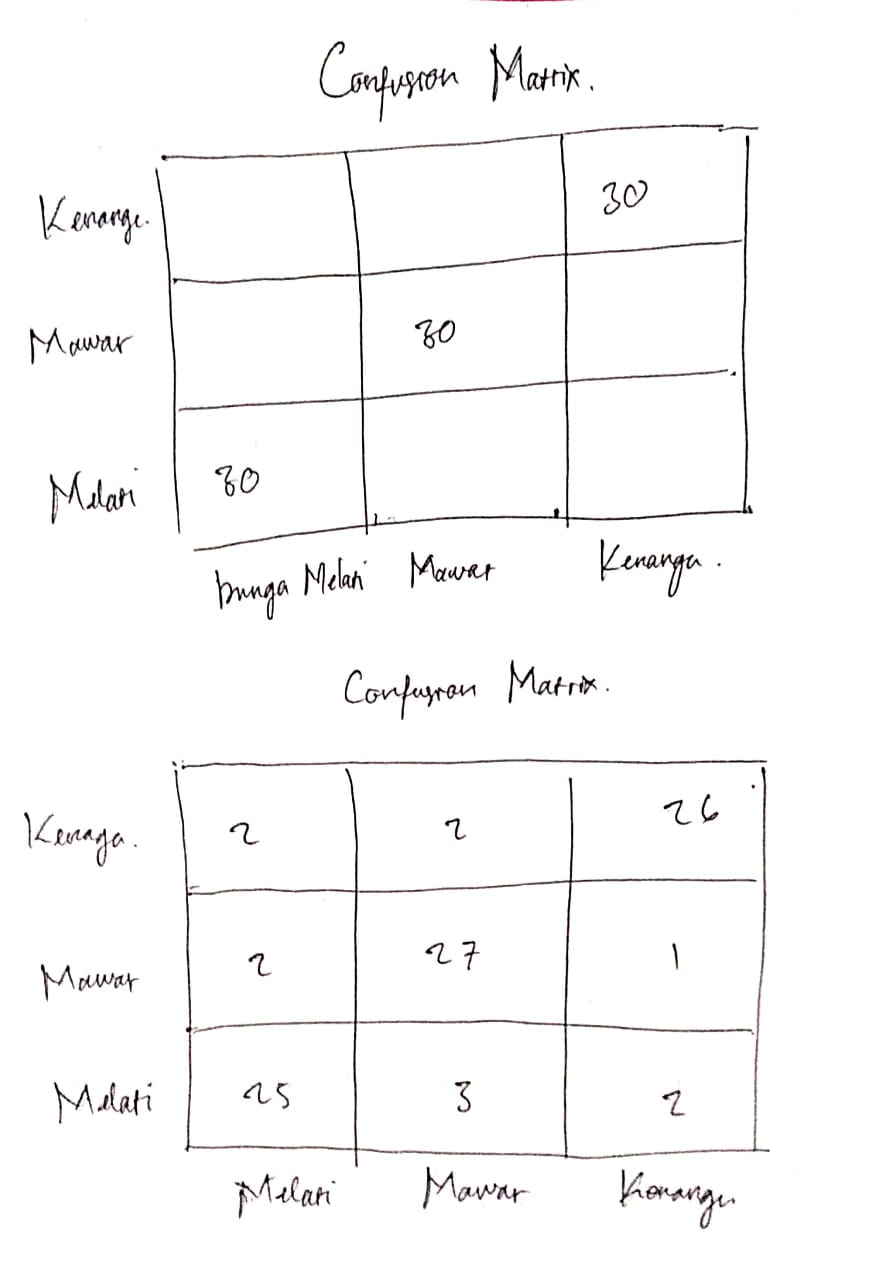 Confusion Matrix.
Kenanga. 30
Mawar 30
Melati 30
bunga Melati Mawar Kenanga.
Confusion Matrix.
Kenaga. 2 2 26
Mawar 2 27 1
Melati 25 3 2
Melati Mawar Kenanga